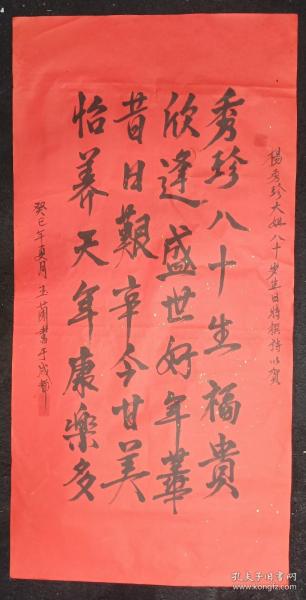 楊秀珍大姐八十岁生日特撰詩以賀
秀珍八十生福貴
欣逢盛世好年華
昔日艱辛今甘美
怡养天年康樂多
癸巳年
月
書于成都
孔夫子旧书网